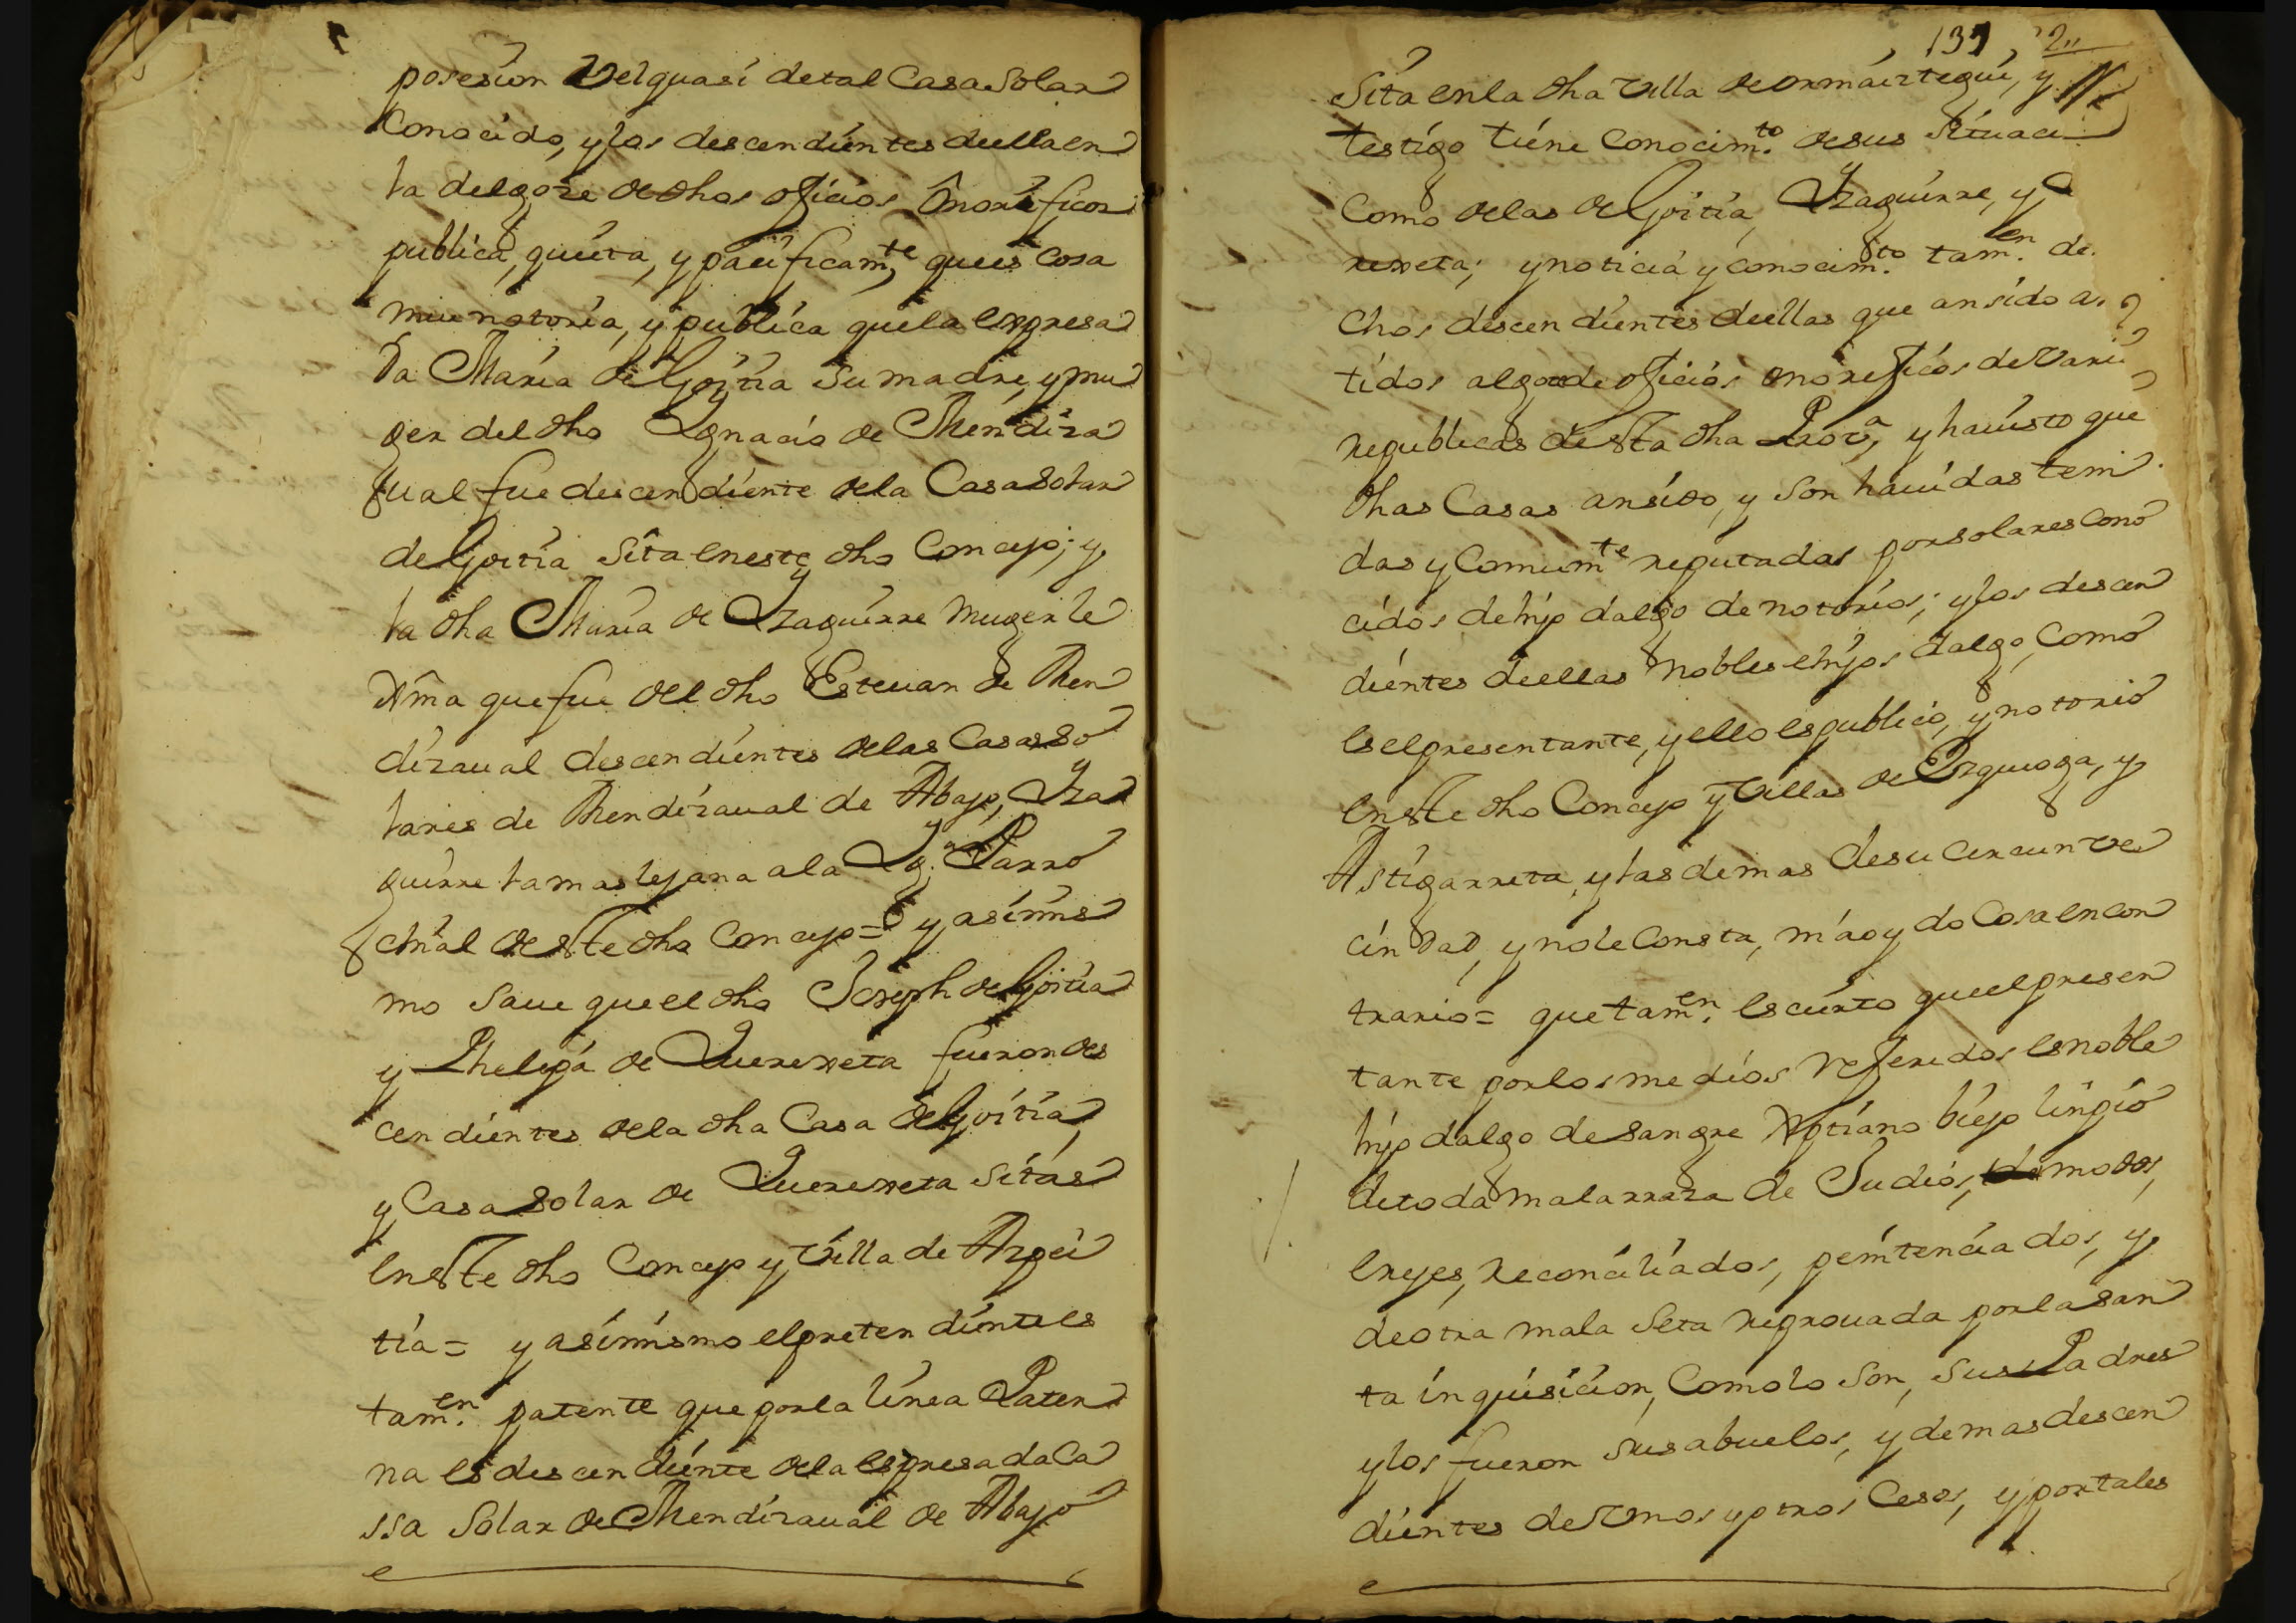 posesion Velquasi de tal Casa Solar
Conocido, y los descendientes de ella en
ta del goze de dhos oficios Onorificos
publica, quieta, y pacificamte, que es cosa
mui notoria, y publica que la expresa
Da Maria de Goitia su madre, y mu
ger del dho Ygnacio de Mendiza
ual fue descendiente de la Casa Solar
de Goitia Sita en este dho Concejo; y
la dha Maria de Yzaguirre muger le
xma que fue del dho Esteuan de Men
dizaual descendientes de las Casas So
lares de Mendizaual de Abajo, Yza
guirre la mas lejana a la Yga. Parro
chial de este dho Concejo = y asimis
mo Saue que el dho Joseph de Goitia
y Phelipa de Querexeta fueron des
cendientes de la dha Casa de Goitia,
y Casa Solar de Querexeta Sitas
en este dho Concejo y Villa de Azpei
tia = y asimismo el pretendiente es
tamen. patente que por la linea Pater
na es descendiente de la espresada Ca
ssa Solar de Mendizaual de Abajo
139, 2
Sita en la dha Villa de Ormaiztegui, y
testigo tiene Conocimto. de sus Situaci
Como de las de Goitia, Yzaguirre, y
rexeta; y noticia y conocimto. tamen. de
chos descendientes de ellas que an sido a
tidos al goze de oficios onorificos de Vari
republicas de esta dha Prova, y ha uisto que
dhas Casas an sido, y Son hauidas teni
das y Comumte reputadas por solares cono
cidos de hijo dalgo de notorios; y los descen
dientes de ellas nobles e hijos dalgo, Como
es el presentante, y ello es publico, y notorio
en este dho Concejo y Villas de Ezquioga, y
Astigarreta, y las demas de su circunve
cindad, y no le Consta, ni a oydo Cosa en con
trario = que tamen. es cierto que el presen
tante por los medios referidos es noble
hijo dalgo de sangre Xptiano biejo linpio
de toda mala rraza de Judios, modos,
erejes, Reconciliados, penitenciados, y
de otra mala Seta reprouada por la san
ta inquisicion, Como lo Son, Sus Padres
y los fueron sus abuelos, y demas descen
dientes de Unos y otros Cesos, y por tales